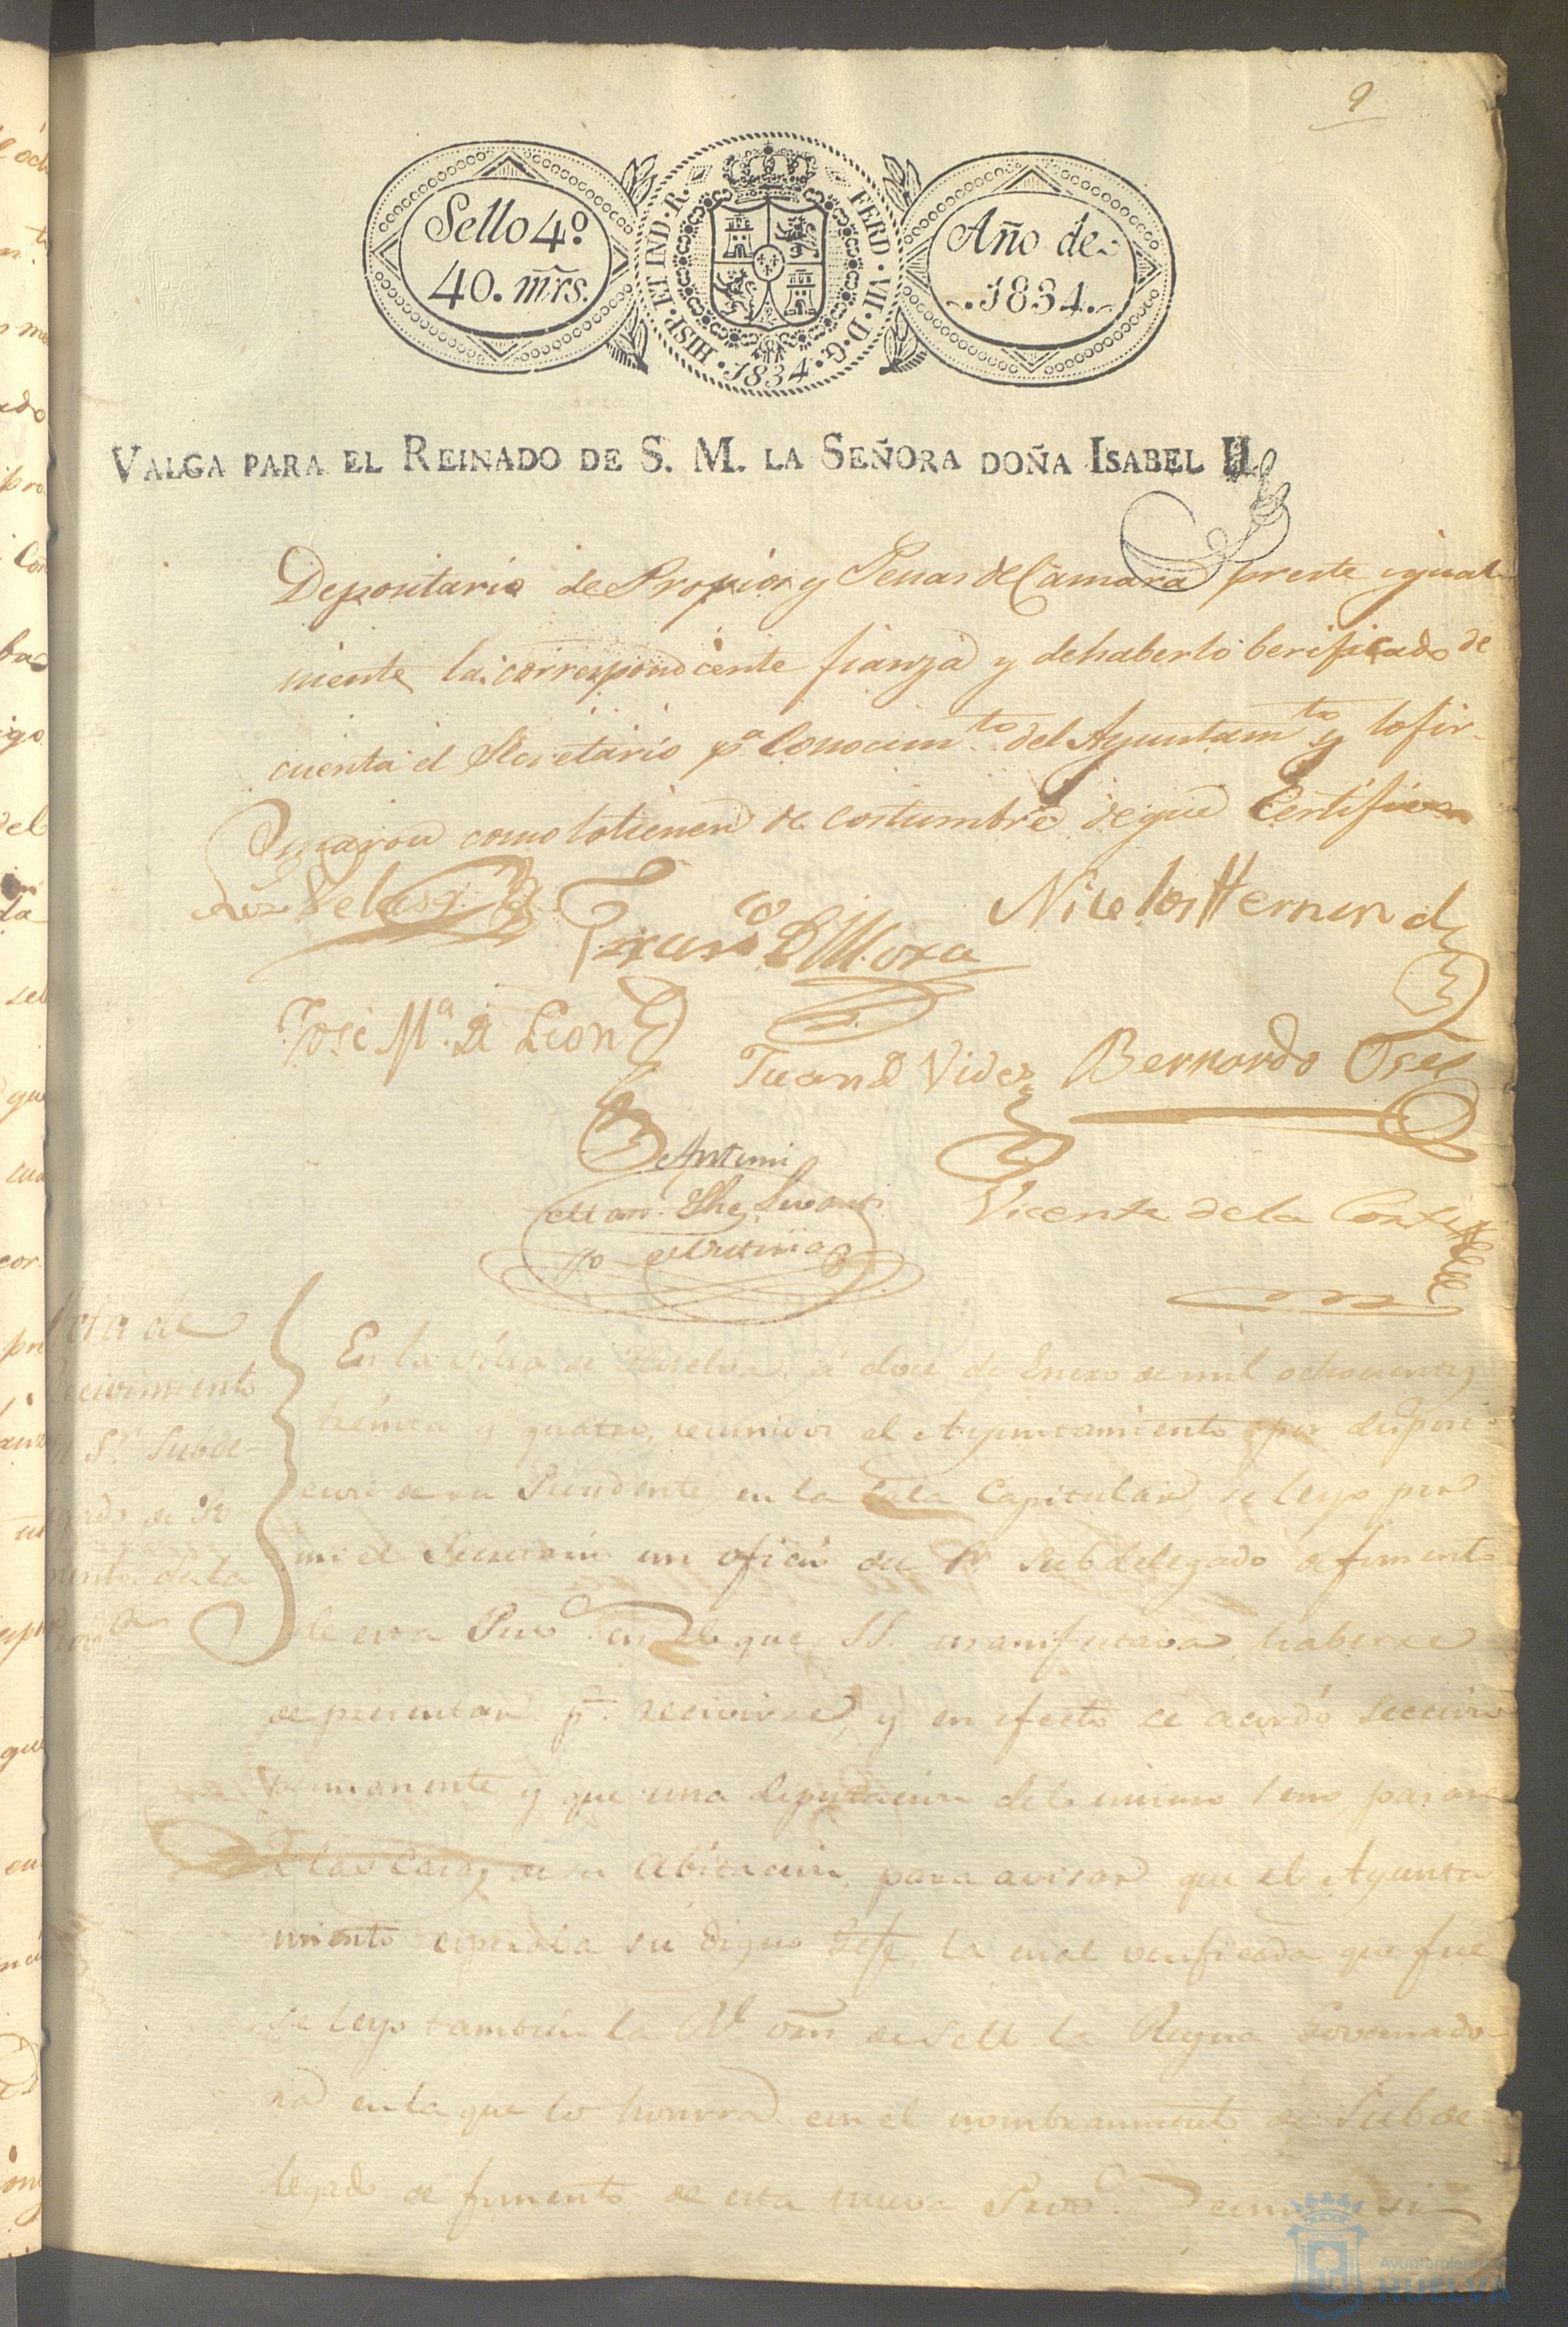 9
Sello 4º
40. mrs.
HISP. ET IND. R. FERD. VII. D. G. 1834.
Año de
1834.
VALGA PARA EL REINADO DE S. M. LA SEÑORA DOÑA ISABEL II.
Depositario de Propios y Penas de Camara preste igual
mente la correspondiente fianza y dehaberlo berificado de
cuenta el Secretario pª Conocimto del Ayuntamto y lo fir-
maron como lo tienen de costumbre de que Certifico
Velasq.
Franco D Mora
Nicolas Hernand
José Mª D Leon
Juan D Vides
Bernardo
Antemi
Vicente de la Corte
Recivimiento
Sr. Subde-
mento de la
En la villa de Huelva á doce de Enero de mil ochocientos
treinta y quatro, reunidos el Ayuntamiento por disposi-
cion de su Presidente en la Sala Capitular, se leyo por
mi el Secretario un oficio del Sr. Subdelegado de fomento
de esta Prova. en el que S.S. manifestava haberse
de presentar pa. recivirse, y en efecto se acordó seccion
permanente y que una diputacion del mismo seno pasara
a las Casas de su abitacion, para avisar que el Ayunta
miento esperava su digno Gefe, la cual verificada que fue
se leyo tambien la Rl orn de S M la Reyna Governado
ra en la que lo honrra con el nombramiento de Subde
legado de fomento de esta nueva Prova.
Ayuntamiento
HUELVA